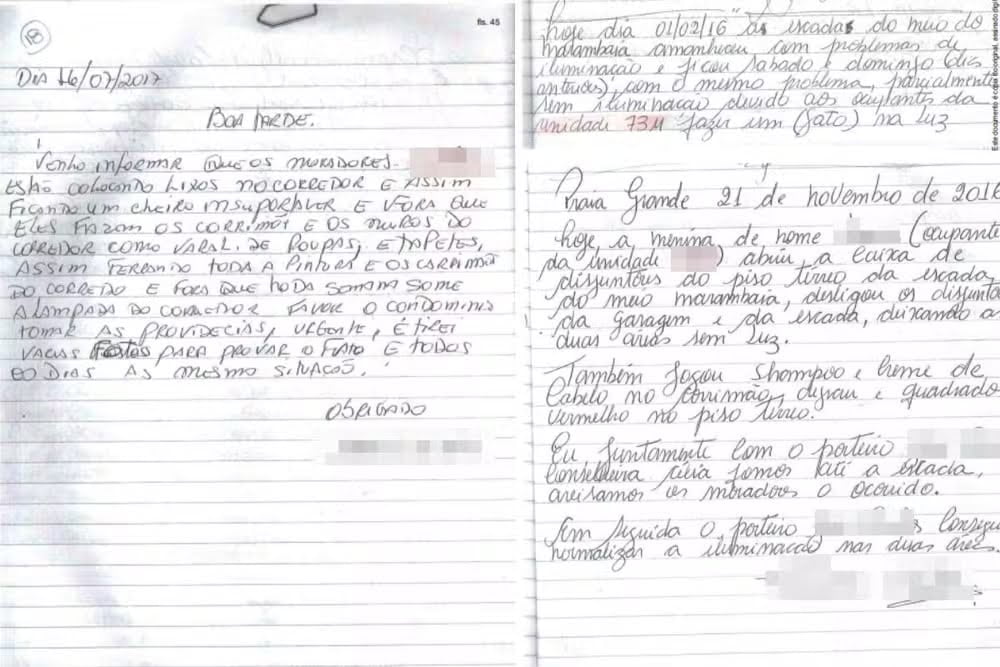 fls. 45
18
DIA 16/07/2017
BOA TARDE.
Venho informar QUE OS MORADORES.
ESTÃO COLOCANDO LIXOS NO CORREDOR E ASSIM
FICANDO UM CHEIRO INSUPORAVER E FORA QUE
ELES FAZAM OS CORRIMÃO E OS MUROS DO
CORREDOR COMO VARAL DE ROUPAS, E TAPETES,
ASSIM FERRANDO TODA A PINTURA E OS CARRIMÃO
DO CORREDO E FORA QUE HODA SOMAM SOME
A LAMPADA DO CORREDOR FAVOR O CONDOMINIO
TOMAR AS PROVIDECIAS, URGENTE, E TIREI
VARIAS FOTOS PARA PROVAR O FATO E TODOS
OO DIAS AS MESMO SITUAÇÃO.
OBRIGADO
hoje dia 01/02/16 as escadas do meio do
marambaia amanheceu com problemas de
iluminação e ficou sabado e domingo (dias
antriores), com o mesmo problema, parcialmente
sem iluminacao devido aos ocupantes da
unidade 73M fazer um (gato) na luz
Praia Grande 21 de novembro de 2016
hoje a menina de nome (ocupante
da unidade ) abriu a caixa de
disjuntores do piso térreo da escada
do meio marambaia, desligou os disjunto
da garagem e da escada, deixando as
duas áreas sem luz.
Também jogou shampoo e creme de
cabelo no corrimão, degrau e quadrado
vermelho no piso térreo.
Eu juntamente com o porteiro
Conselheira célia fomos até a escada,
avisamos os moradores o ocorrido.
Em seguida o porteiro consegui
normalizar a iluminacao nas duas áreas.
Este documento é cópia do original, assinado digi